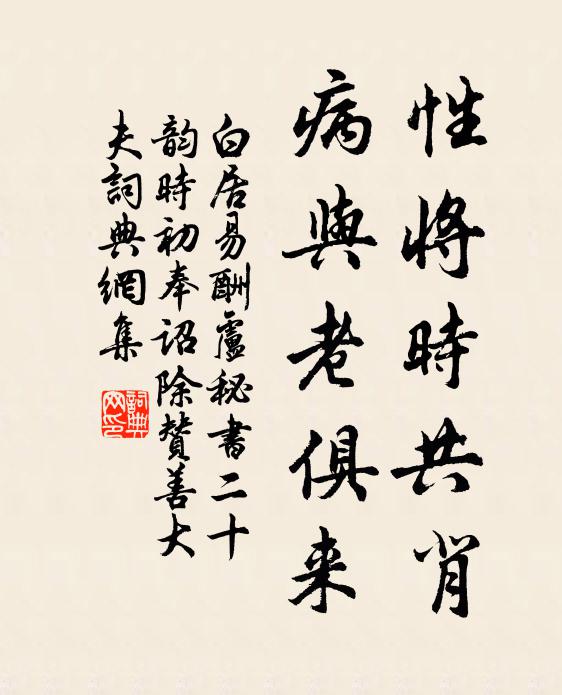 性將時共背
病與老俱来
白居易酬盧秘書二十
韵時初奉詔除贊善大
夫詞典網集
詞典
网印